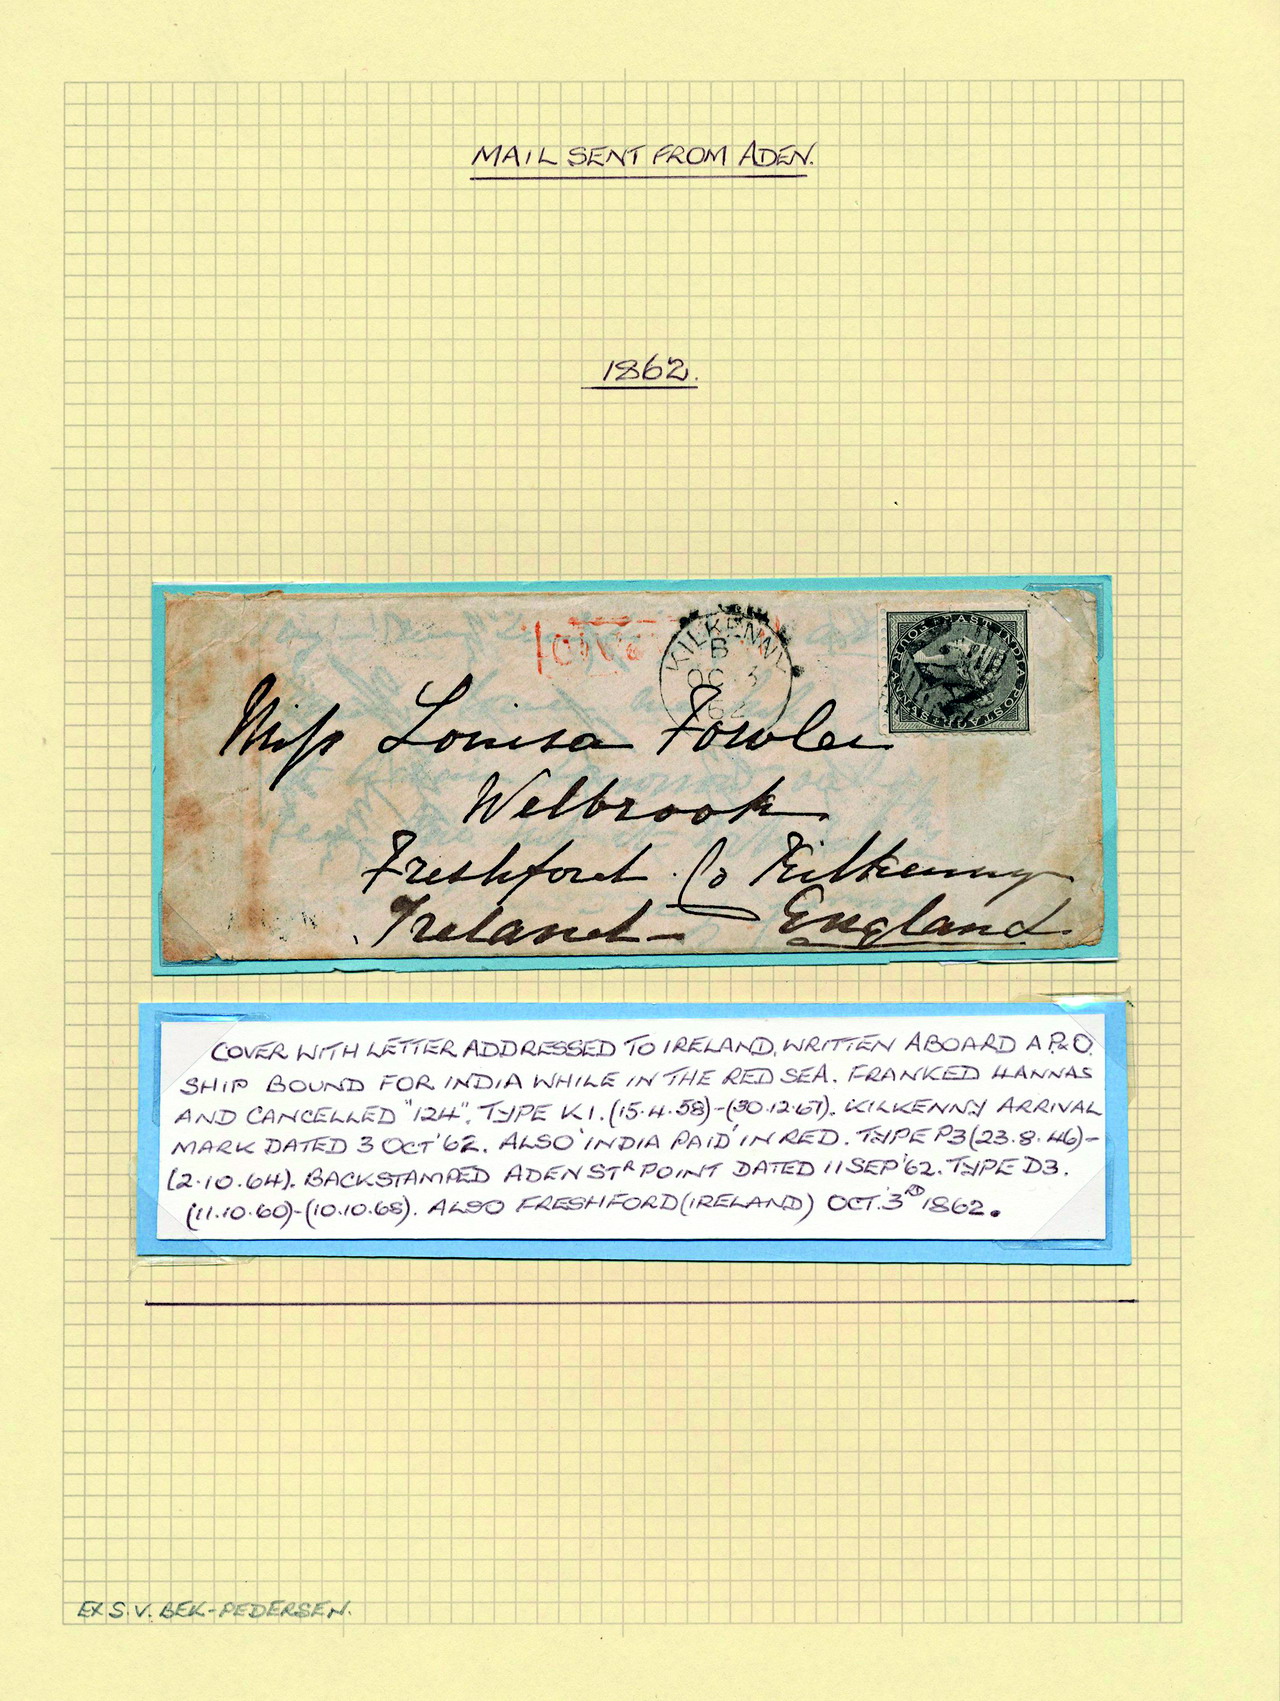 MAIL SENT FROM ADEN.
1862.
KILKENNY
B
OC 3
62
EAST INDIA POSTAGE
FOUR ANNAS
Miss Louisa Fowler
Welbrook
Freshford Co Kilkenny
Ireland - England
COVER WITH LETTER ADDRESSED TO IRELAND, WRITTEN ABOARD A P.&O.
SHIP BOUND FOR INDIA WHILE IN THE RED SEA. FRANKED 4 ANNAS
AND CANCELLED "124". TYPE K1. (15.4.58)-(30.12.67). KILKENNY ARRIVAL
MARK DATED 3 OCT '62. ALSO 'INDIA PAID' IN RED. TYPE P3 (23.8.46)-
(2.10.64). BACKSTAMPED ADEN STR POINT DATED 11 SEP '62. TYPE D3.
(11.10.60)-(10.10.65). ALSO FRESHFORD (IRELAND) OCT. 3RD 1862.
EX S.V. BEK-PEDERSEN.